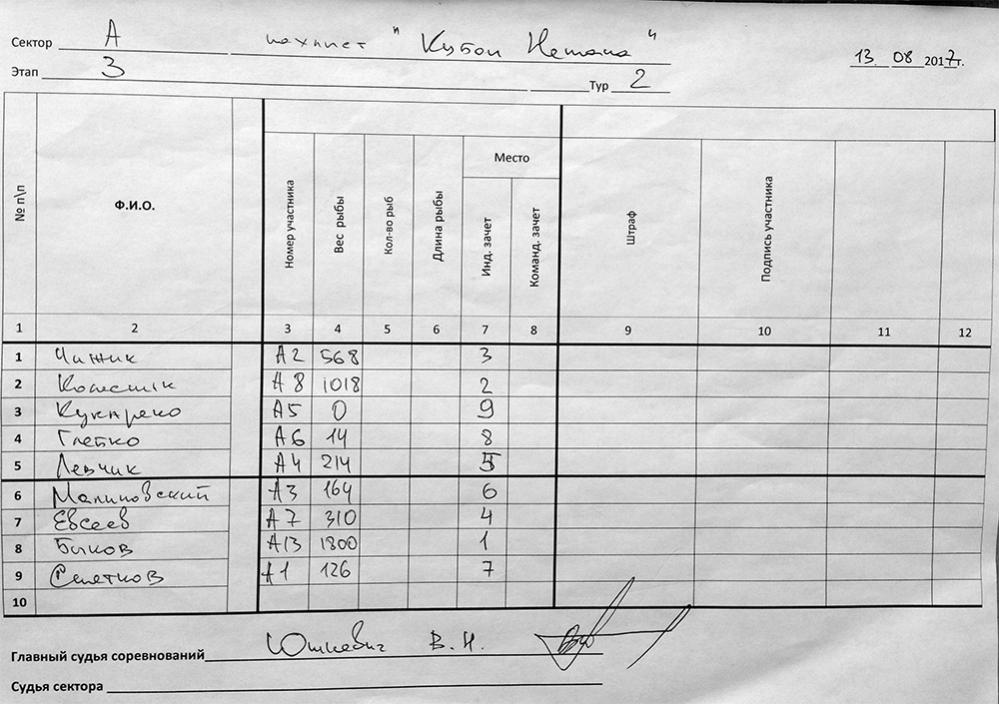 Сектор А нахлыст "Кубок Немана" 13. 08 2017г.
Этап 3 Тур 2
№ п\п Ф.И.О. Номер участника Вес рыбы Кол-во рыб Длина рыбы Место Инд. зачет Команд. зачет Штраф Подпись участника
1 2 3 4 5 6 7 8 9 10 11 12
1 Чижик А2 568 3
2 А8 1018 2
3 Кукреко А5 0 9
4 Глебко А6 14 8
5 Левчик А4 214 5
6 Малиновский А3 164 6
7 Евсеев А7 310 4
8 Быков А13 1800 1
9 Селетков А1 126 7
10
Главный судья соревнований Юшкевич В.Н.
Судья сектора